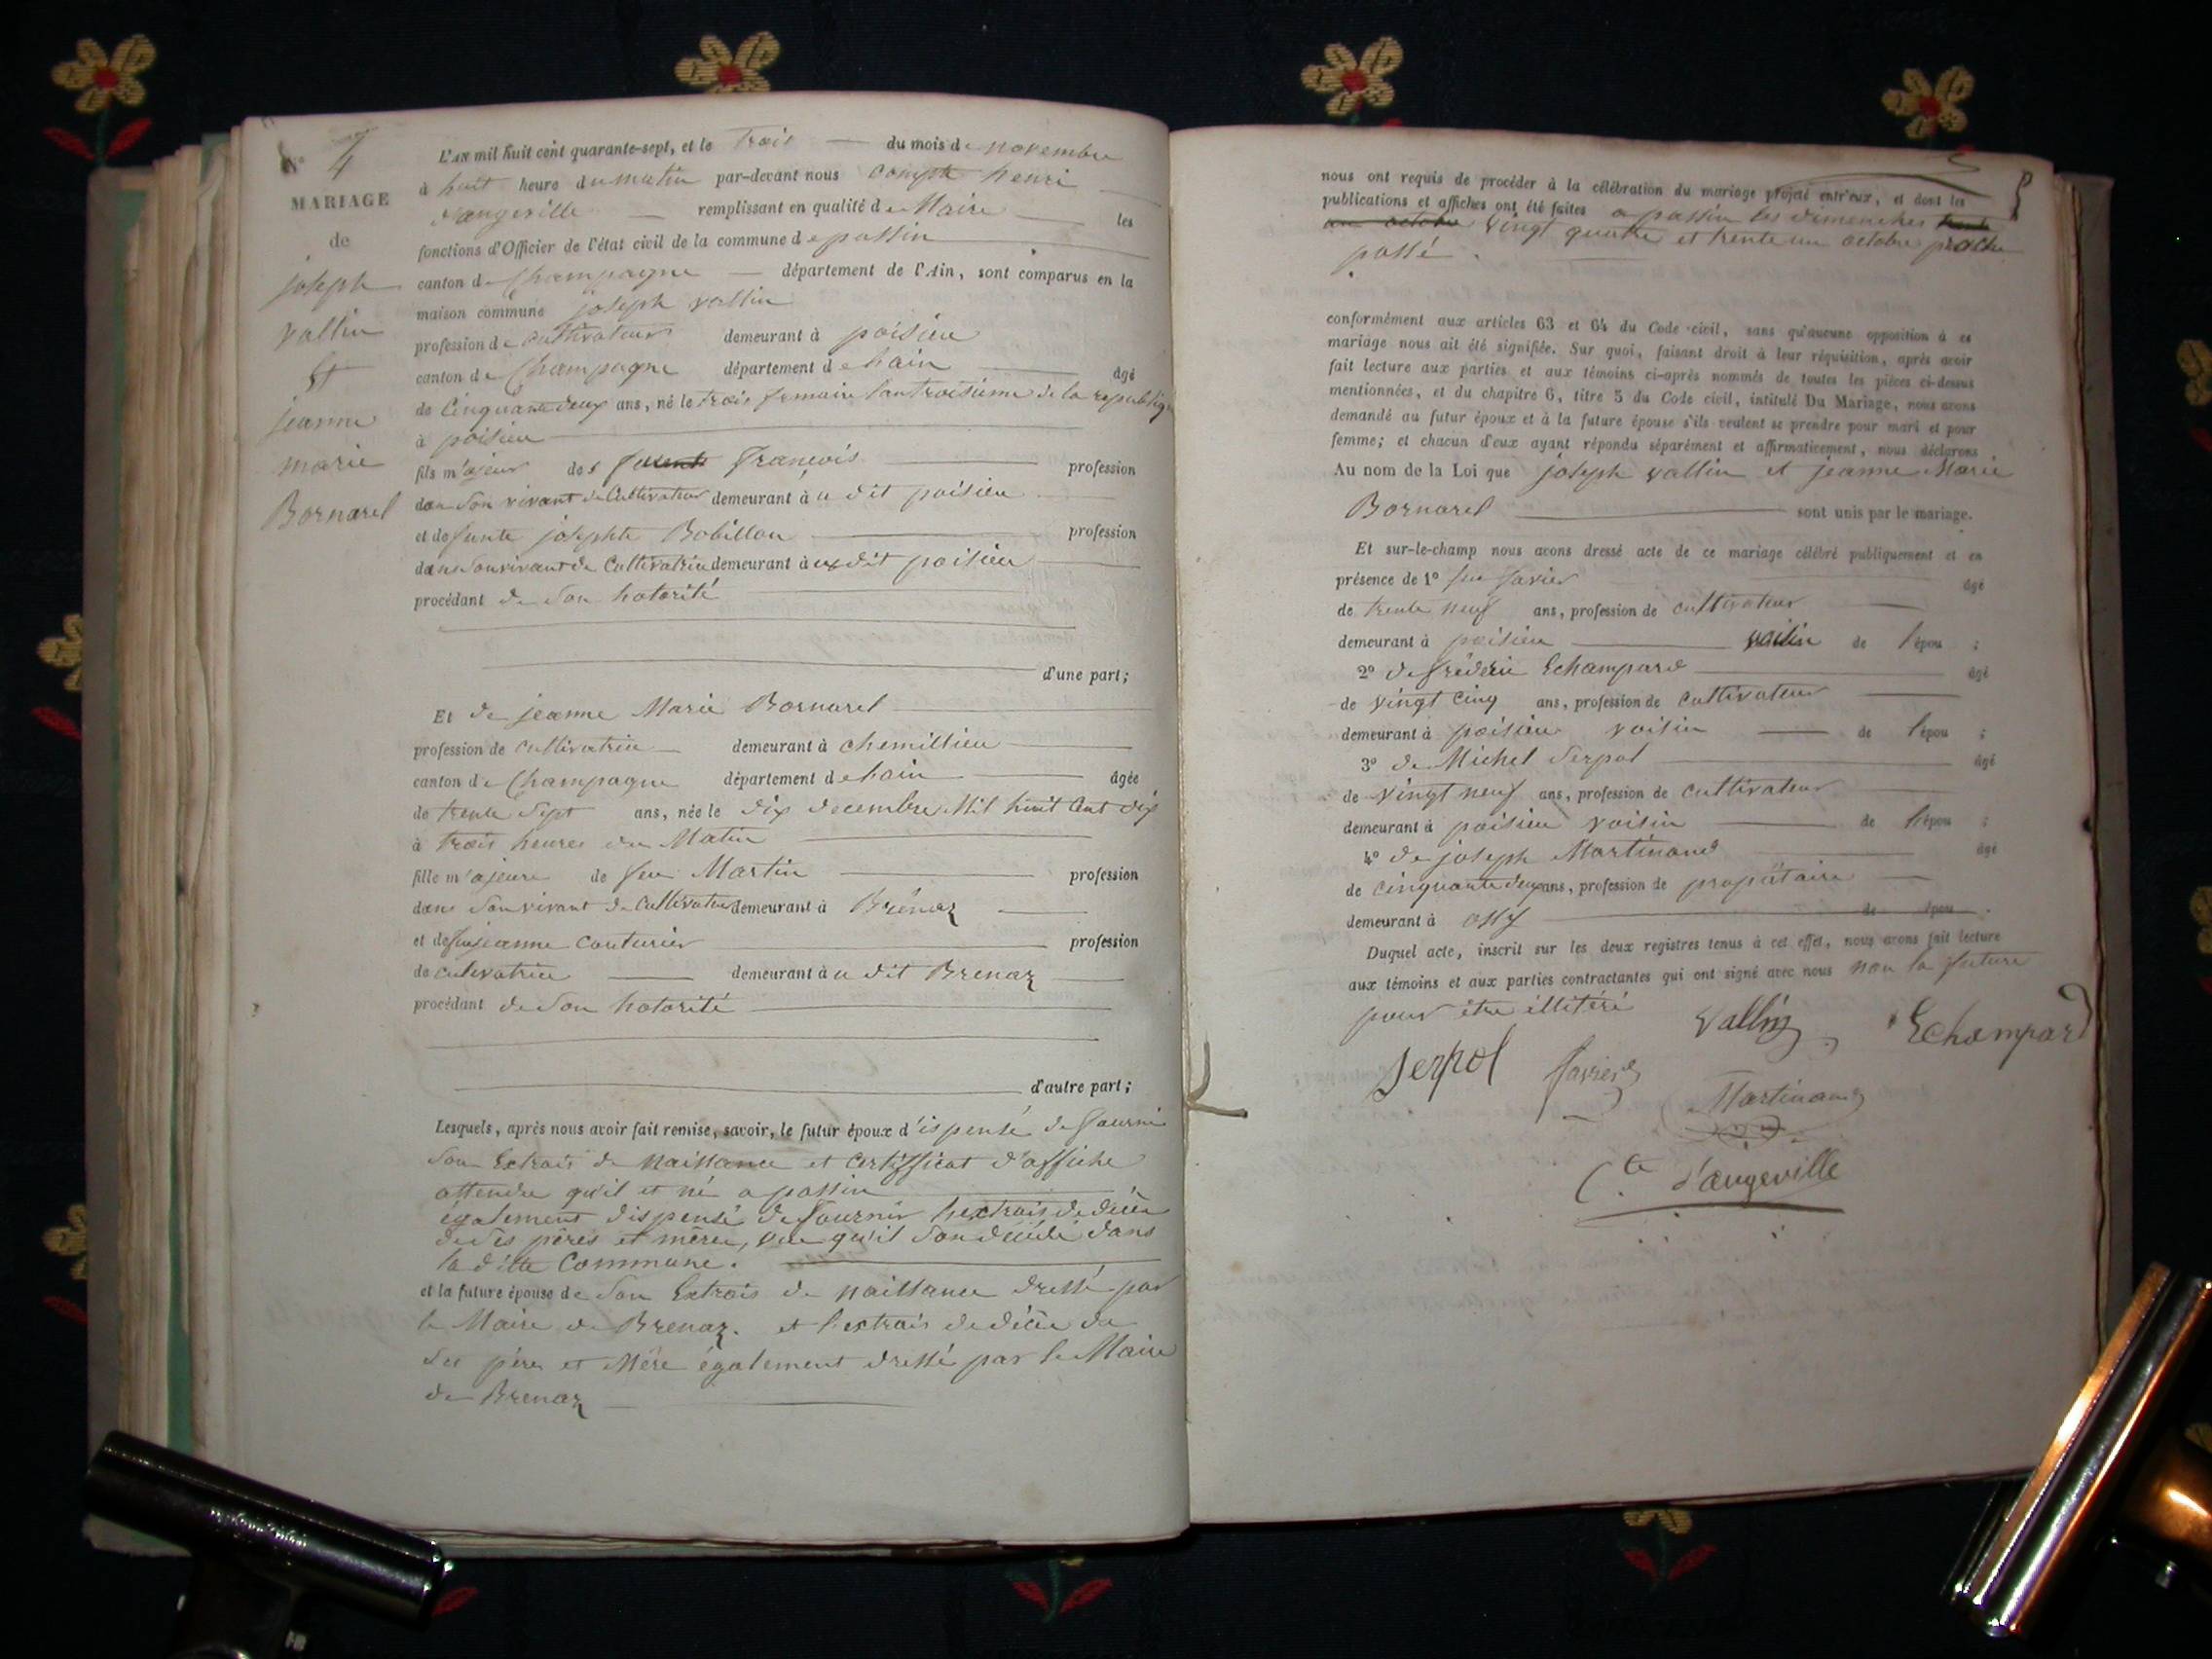 N° 4
MARIAGE
de
joseph
vallin
Et
jeanne
marie
Bornarel
L'AN mil huit cent quarante-sept, et le trois du mois de novembre
à huit heure du matin par-devant nous compte henri
d'angeville remplissant en qualité de Maire les
fonctions d'Officier de l'état civil de la commune de passin
canton de Champagne département de l'Ain, sont comparus en la
maison commune joseph vallin
profession de cultivateur demeurant à poisieu
canton de Champagne département de hain âgé
de Cinquante deux ans, né le trois frimaire lantroisieme de la republiq
à poisieu
fils m'ajeur des françois profession
dan son vivant de Cultivateur demeurant à u dit poisieu
et de funte josephte Bobillon profession
dans son vivant de Cultivatrice demeurant à u dit poisieu
procédant de son hotorité
d'une part;
Et de jeanne Marie Bornarel
profession de cultivatrice demeurant à chemillieu
canton de Champagne département de hain âgée
de trente sept ans, née le dix decembre Mil huit Cent dix
à trois heures du Matin
fille m'ajeure de feu Martin profession
dans son vivant de Cultivateur demeurant à Brénaz
et de feu jeanne couturier profession
de cultivatrice demeurant à u dit Brenaz
procédant de son hotorité
d'autre part;
Lesquels, après nous avoir fait remise, savoir, le futur époux d'ispensé de fournir
son Extrait de Naissance et certifficat d'affiche
attendu qu'il et né a passin
également dispensé de fournir l'extrais de décèe
de ses pères et mères, vue qu'il son décédé dans
la ditte Commune.
et la future épouse de son Extrais de naissance dressé par
le Maire de Brenaz. et l'extrais de décèe de
ses père et Mère également dressé par le Maire
de Brenaz
nous ont requis de procéder à la célébration du mariage projeté entr'eux, et dont les
publications et affiches ont été faites a passin les dimenches
un octobre vingt quatre et trente un octobre proche
passé.
conformément aux articles 63 et 64 du Code civil, sans qu'aucune opposition à ce
mariage nous ait été signifiée. Sur quoi, faisant droit à leur réquisition, après avoir
fait lecture aux parties et aux témoins ci-après nommés de toutes les pièces ci-dessus
mentionnées, et du chapitre 6, titre 5 du Code civil, intitulé Du Mariage, nous avons
demandé au futur époux et à la future épouse s'ils veulent se prendre pour mari et pour
femme; et chacun d'eux ayant répondu séparément et affirmativement, nous déclarons
Au nom de la Loi que joseph vallin et jeanne Marie
Bornarel sont unis par le mariage.
Et sur-le-champ nous avons dressé acte de ce mariage célébré publiquement et en
présence de 1° favier âgé
de trente neuf ans, profession de cultivateur
demeurant à poisieu voisin de l'épou ;
2° de fréderic Echampard âgé
de vingt cinq ans, profession de cultivateur
demeurant à poisieu voisin de l'épou ;
3° de Michel Serpol âgé
de vingt neuf ans, profession de cultivateur
demeurant à poisieu voisin de l'épou ;
4° de joseph Martinand âgé
de cinquante deux ans, profession de propiétaire
demeurant à ossy de épou .
Duquel acte, inscrit sur les deux registres tenus à cet effet, nous avons fait lecture
aux témoins et aux parties contractantes qui ont signé avec nous non la future
pour être illitéré
Vallin Echampard
Serpol favier
Martinand
Cte d'angeville